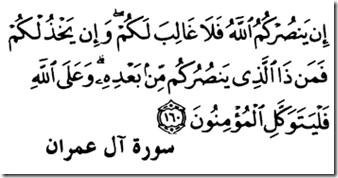 إِن يَنصُرْكُمُ ٱللَّهُ فَلَا غَالِبَ لَكُمْ ۖ وَإِن يَخْذُلْكُمْ
فَمَن ذَا ٱلَّذِى يَنصُرُكُم مِّنۢ بَعْدِهِۦ ۗ وَعَلَى ٱللَّهِ
فَلْيَتَوَكَّلِ ٱلْمُؤْمِنُونَ ١٦٠
سورة آل عمران